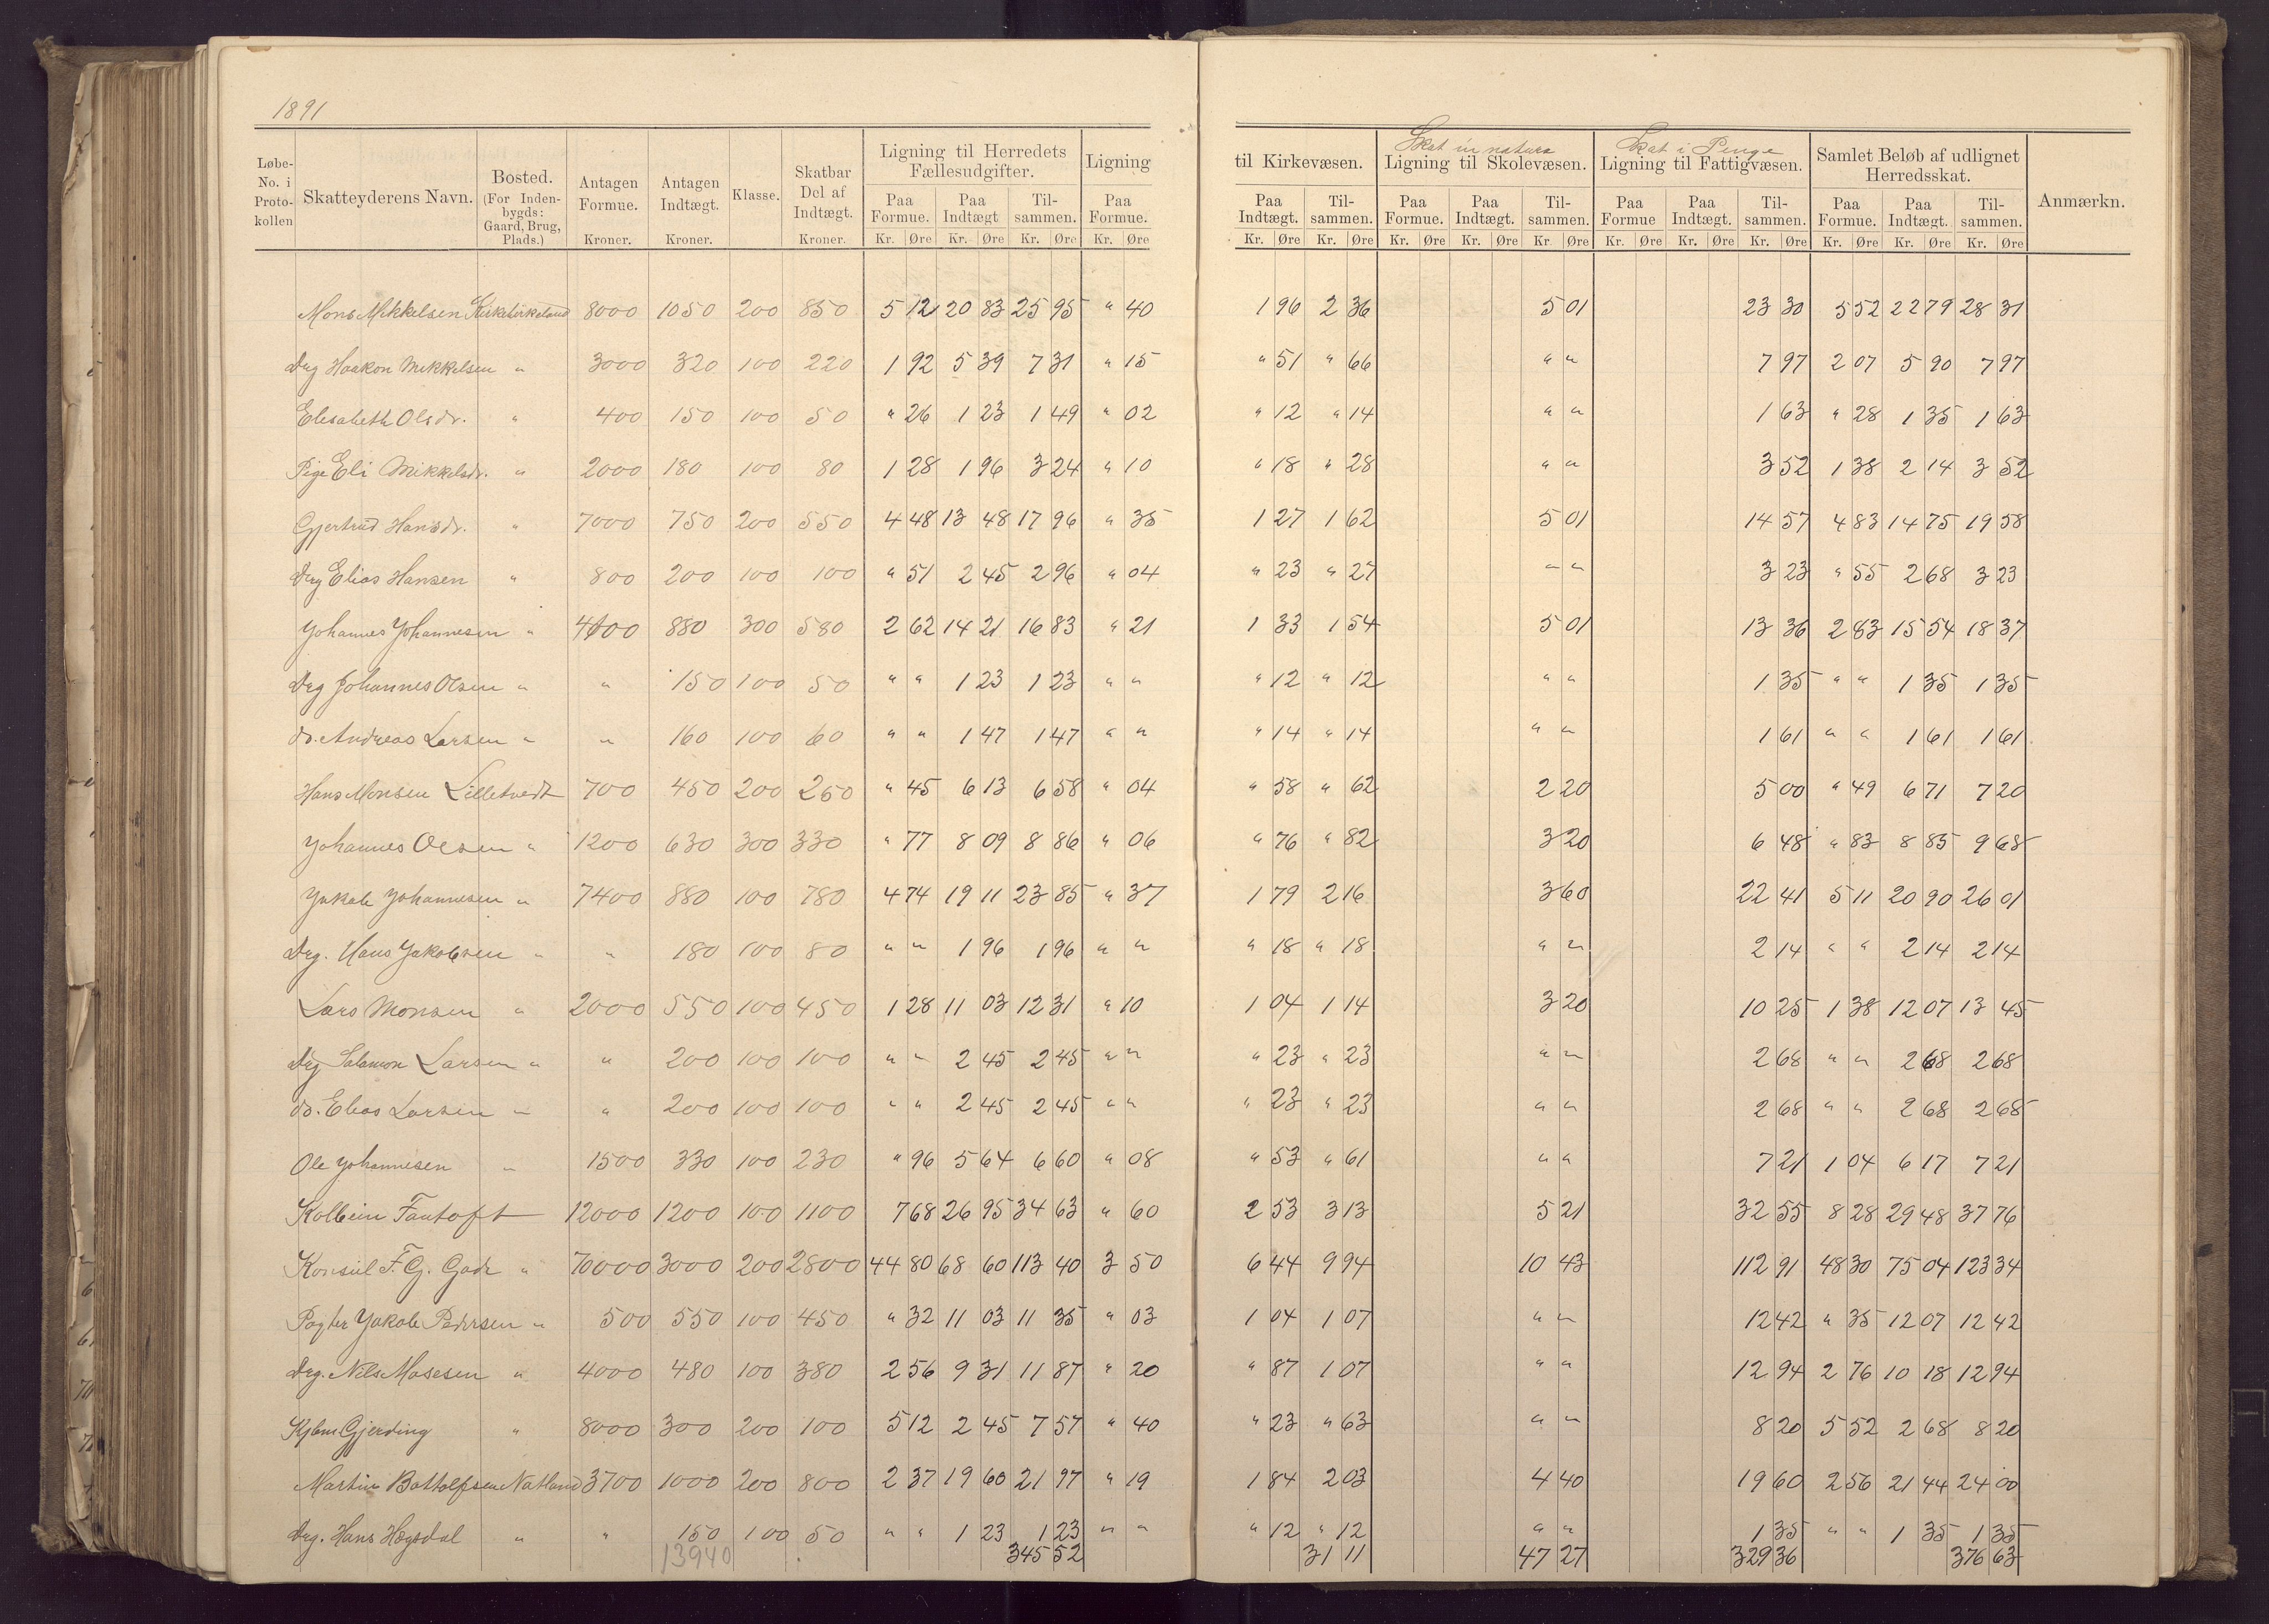 1891
Løbe-No. i Proto-kollen | Skatteyderens Navn. | Bosted. (For Inden-bygds: Gaard, Brug, Plads.) | Antagen Formue. Kroner. | Antagen Indtægt. Kroner. | Klasse. | Skatbar Del af Indtægt. Kroner. | Ligning til Herredets Fællesudgifter. Paa Formue. Kr. Øre Paa Indtægt Kr. Øre Til-sammen. Kr. Øre | Ligning Paa Formue. Kr. Øre | til Kirkevæsen. Paa Indtægt. Kr. Øre Til-sammen. Kr. Øre | Skat in natura Ligning til Skolevæsen. Paa Formue. Kr. Øre Paa Indtægt. Kr. Øre Til-sammen. Kr. Øre | Skat i Penge Ligning til Fattigvæsen. Paa Formue Kr. Øre Paa Indtægt. Kr. Øre Til-sammen. Kr. Øre | Samlet Beløb af udlignet Herredsskat. Paa Formue. Kr. Øre Paa Indtægt. Kr. Øre Til-sammen. Kr. Øre | Anmærkn.
Mons Mikkelsen Kirkebirkeland 8000 1050 200 850 5 12 20 83 25 95 " 40 1 96 2 36 5 01 23 30 5 52 22 79 28 31
Drg Haakon Mikkelsen " 3000 320 100 220 1 92 5 39 7 31 " 15 " 51 " 66 " " 7 97 2 07 5 90 7 97
Elesabeth Olsdr. " 400 150 100 50 " 26 1 23 1 49 " 02 " 12 " 14 " " 1 63 " 28 1 35 1 63
Pige Eli Mikkelsdr. " 2000 180 100 80 1 28 1 96 3 24 " 10 " 18 " 28 " " 3 52 1 38 2 14 3 52
Gjertrud Hansdr. " 7000 750 200 550 4 48 13 48 17 96 " 35 1 27 1 62 5 01 14 57 4 83 14 75 19 58
Drg Elias Hansen " 800 200 100 100 " 51 2 45 2 96 " 04 " 23 " 27 " " 3 23 " 55 2 68 3 23
Johannes Johannesen " 4100 880 300 580 2 62 14 21 16 83 " 21 1 33 1 54 5 01 13 36 2 83 15 54 18 37
Drg Johannes Olsen " " 150 100 50 " " 1 23 1 23 " " " 12 " 12 " " 1 35 " " 1 35 1 35
do. Andreas Larsen " " 160 100 60 " " 1 47 1 47 " " " 14 " 14 " " 1 61 " " 1 61 1 61
Hans Monsen Lilletvedt 700 450 200 250 " 45 6 13 6 58 " 04 " 58 " 62 2 20 5 00 " 49 6 71 7 20
Johannes Olsen " 1200 630 300 330 " 77 8 09 8 86 " 06 " 76 " 82 3 20 6 48 " 83 8 85 9 68
Jakob Johannesen " 7400 880 100 780 4 74 19 11 23 85 " 37 1 79 2 16 3 60 22 41 5 11 20 90 26 01
Drg. Hans Jakobsen " " 180 100 80 " " 1 96 1 96 " " " 18 " 18 " " 2 14 " " 2 14 2 14
Lars Monsen " 2000 550 100 450 1 28 11 03 12 31 " 10 1 04 1 14 3 20 10 25 1 38 12 07 13 45
Drg Salamon Larsen " " 200 100 100 " " 2 45 2 45 " " " 23 " 23 " " 2 68 " " 2 68 2 68
do. Elias Larsen " " 200 100 100 " " 2 45 2 45 " " " 23 " 23 " " 2 68 " " 2 68 2 68
Ole Johannesen " 1500 330 100 230 " 96 5 64 6 60 " 08 " 53 " 61 " " 7 21 1 04 6 17 7 21
Kolbein Fantoft 12000 1200 100 1100 7 68 26 95 34 63 " 60 2 53 3 13 5 21 32 55 8 28 29 48 37 76
Konsul F. G. Gade " 70000 3000 200 2800 44 80 68 60 113 40 3 50 6 44 9 94 10 43 112 91 48 30 75 04 123 34
Pagter Jakob Pedersen " 500 550 100 450 " 32 11 03 11 35 " 03 1 04 1 07 " " 12 42 " 35 12 07 12 42
Drg. Nils Mosesen " 4000 480 100 380 2 56 9 31 11 87 " 20 " 87 1 07 " " 12 94 2 76 10 18 12 94
Kjbm Gjerding " 8000 300 200 100 5 12 2 45 7 57 " 40 " 23 " 63 " " 8 20 5 52 2 68 8 20
Martin Bottolfsen Natland 3700 1000 200 800 2 37 19 60 21 97 " 19 1 84 2 03 4 40 19 60 2 56 21 44 24 00
Drg. Hans Høgsdal " " 150 100 50 " " 1 23 1 23 " " " 12 " 12 " " 1 35 " " 1 35 1 35
13940 345 52 31 11 47 27 329 36 376 63